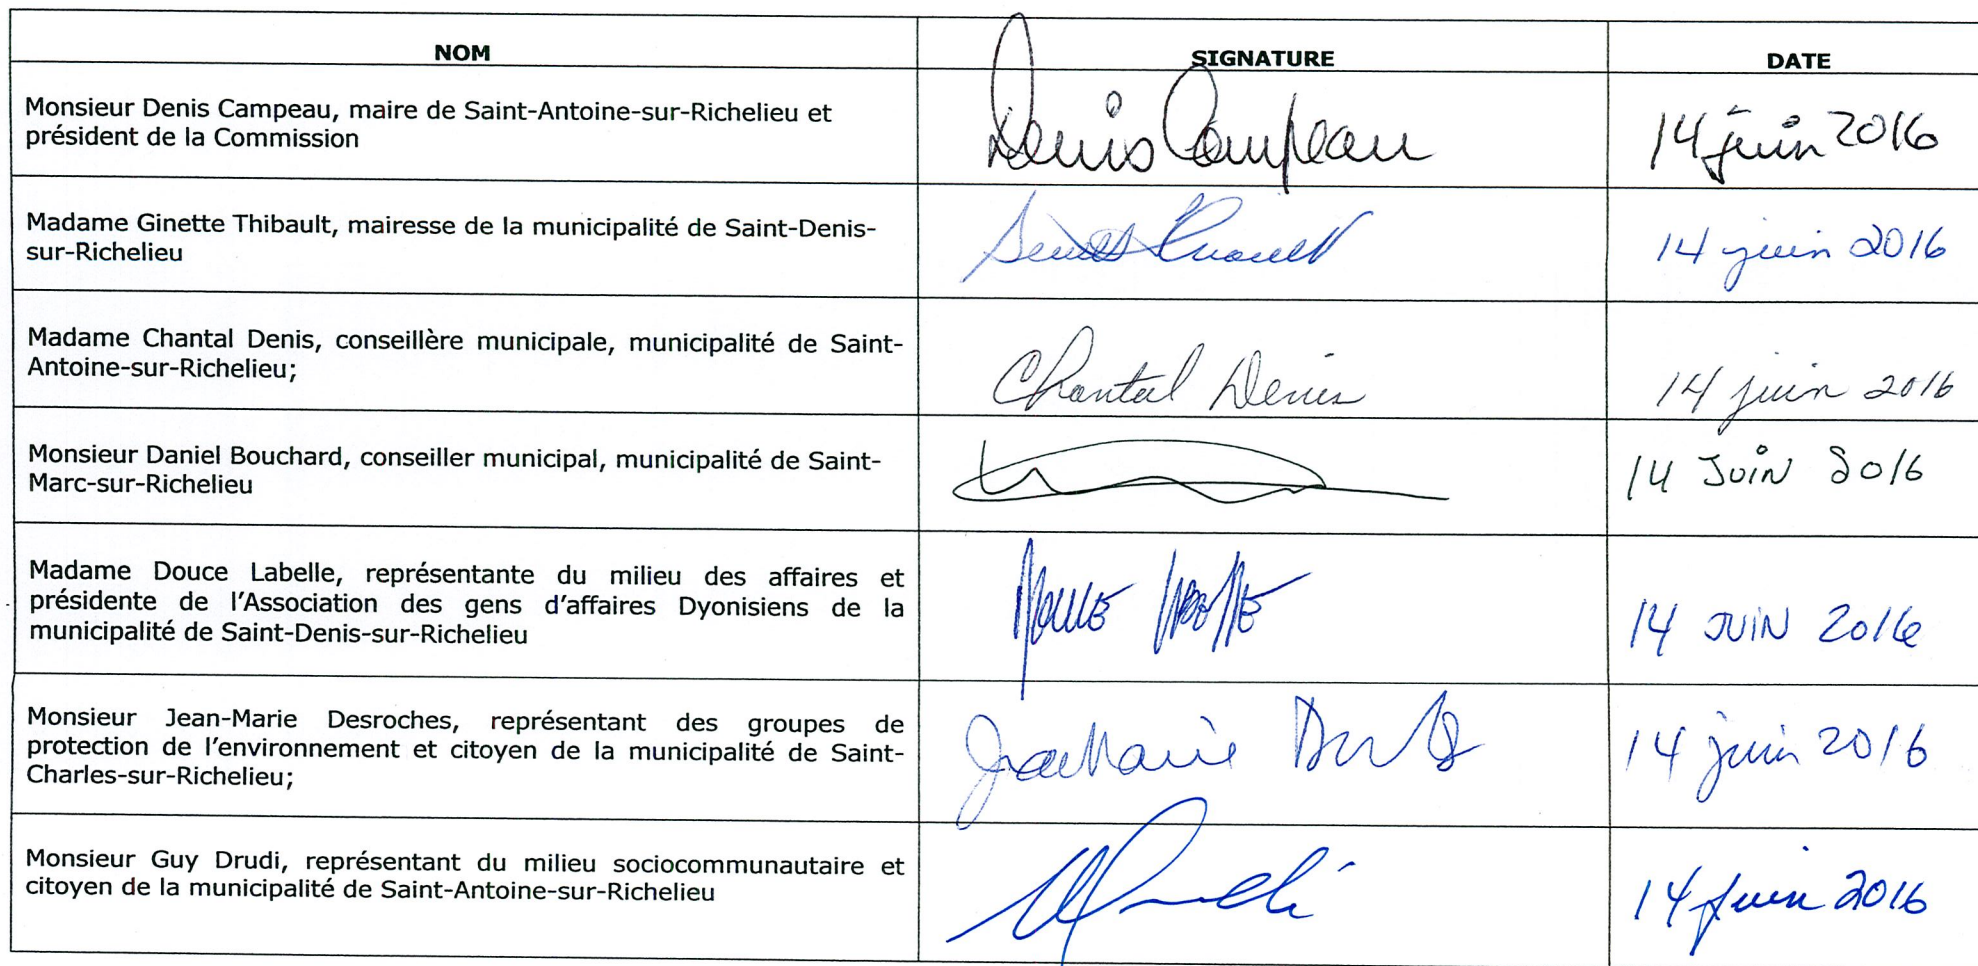 NOM SIGNATURE DATE
Monsieur Denis Campeau, maire de Saint-Antoine-sur-Richelieu et
président de la Commission
Denis Campeau 14 juin 2016
Madame Ginette Thibault, mairesse de la municipalité de Saint-Denis-
sur-Richelieu
14 juin 2016
Madame Chantal Denis, conseillère municipale, municipalité de Saint-
Antoine-sur-Richelieu;
Chantal Denis 14 juin 2016
Monsieur Daniel Bouchard, conseiller municipal, municipalité de Saint-
Marc-sur-Richelieu
14 JUIN 2016
Madame Douce Labelle, représentante du milieu des affaires et
présidente de l'Association des gens d'affaires Dyonisiens de la
municipalité de Saint-Denis-sur-Richelieu
14 JUIN 2016
Monsieur Jean-Marie Desroches, représentant des groupes de
protection de l'environnement et citoyen de la municipalité de Saint-
Charles-sur-Richelieu;
14 juin 2016
Monsieur Guy Drudi, représentant du milieu sociocommunautaire et
citoyen de la municipalité de Saint-Antoine-sur-Richelieu
14 juin 2016